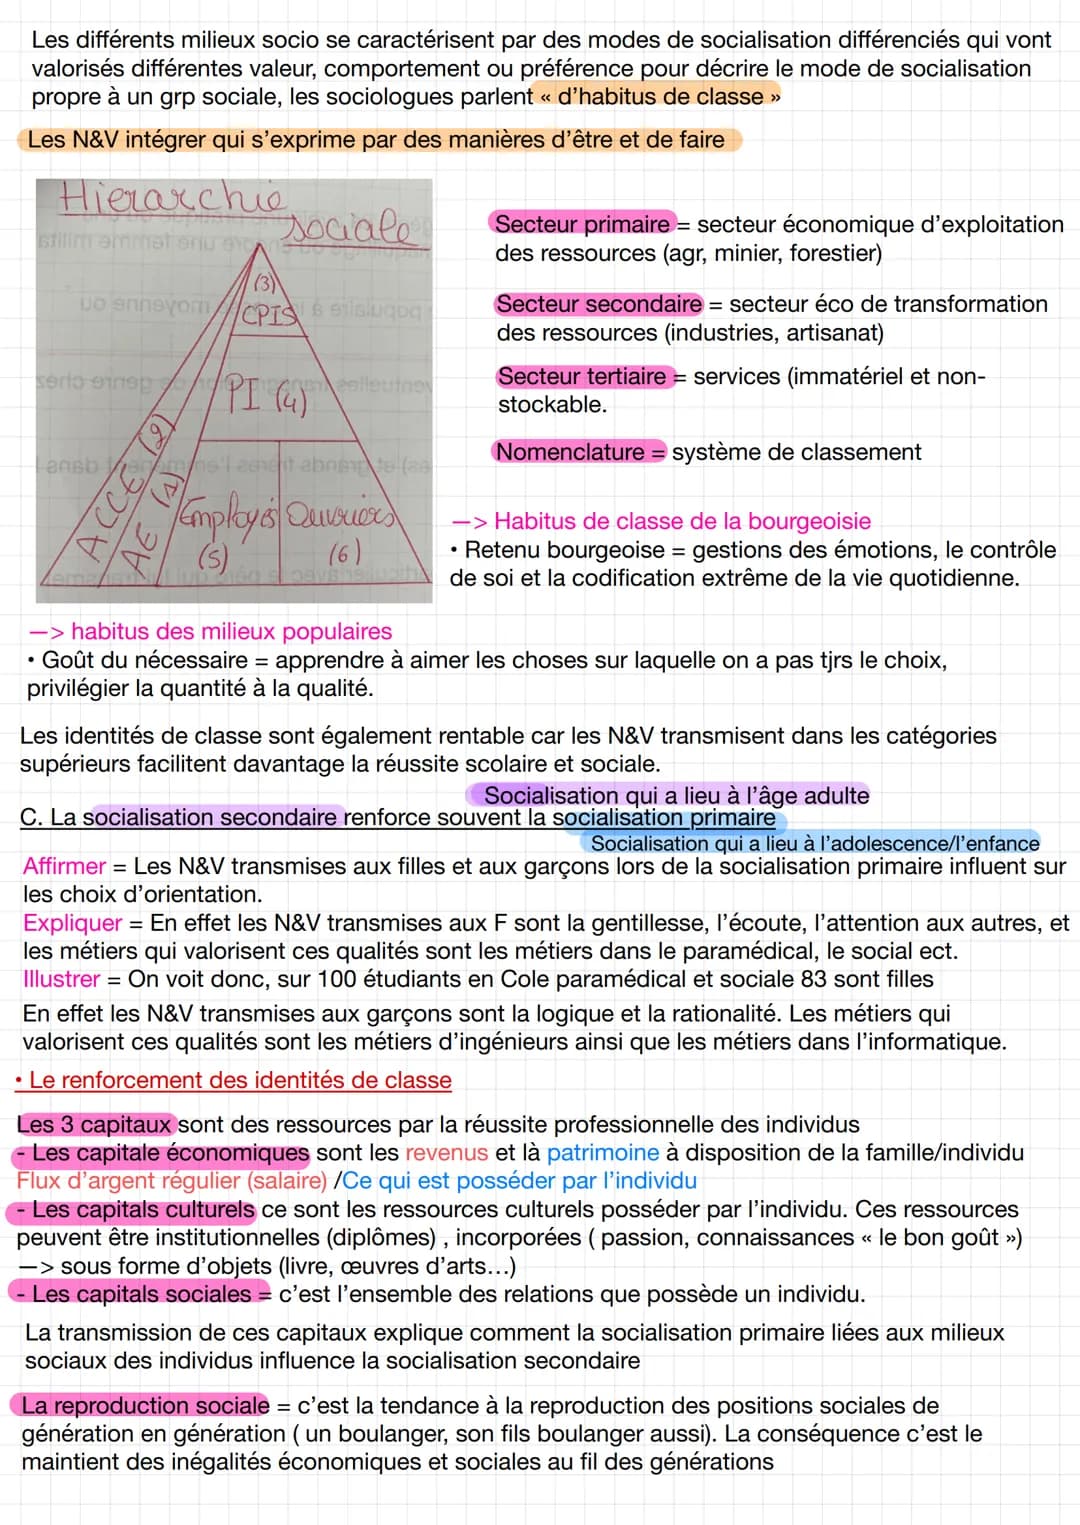 Les différents milieux socio se caractérisent par des modes de socialisation différenciés qui vont
valorisés différentes valeur, comportement ou préférence pour décrire le mode de socialisation
propre à un grp sociale, les sociologues parlent « d'habitus de classe »
Les N&V intégrer qui s'exprime par des manières d'être et de faire
Hierarchie
sociale
(3)
CPIS
PI (4)
ACCE (2)
AE (1)
Employés
(5)
Ouvriers
(6)
Secteur primaire = secteur économique d'exploitation
des ressources (agr, minier, forestier)
Secteur secondaire = secteur éco de transformation
des ressources (industries, artisanat)
Secteur tertiaire = services (immatériel et non-
stockable.
Nomenclature = système de classement
—> Habitus de classe de la bourgeoisie
• Retenu bourgeoise = gestions des émotions, le contrôle
de soi et la codification extrême de la vie quotidienne.
—> habitus des milieux populaires
• Goût du nécessaire = apprendre à aimer les choses sur laquelle on a pas tjrs le choix,
privilégier la quantité à la qualité.
Les identités de classe sont également rentable car les N&V transmisent dans les catégories
supérieurs facilitent davantage la réussite scolaire et sociale.
Socialisation qui a lieu à l'âge adulte
C. La socialisation secondaire renforce souvent la socialisation primaire
Socialisation qui a lieu à l'adolescence/l'enfance
Affirmer = Les N&V transmises aux filles et aux garçons lors de la socialisation primaire influent sur
les choix d'orientation.
Expliquer = En effet les N&V transmises aux F sont la gentillesse, l'écoute, l'attention aux autres, et
les métiers qui valorisent ces qualités sont les métiers dans le paramédical, le social ect.
Illustrer = On voit donc, sur 100 étudiants en Cole paramédical et sociale 83 sont filles
En effet les N&V transmises aux garçons sont la logique et la rationalité. Les métiers qui
valorisent ces qualités sont les métiers d'ingénieurs ainsi que les métiers dans l'informatique.
• Le renforcement des identités de classe
Les 3 capitaux sont des ressources par la réussite professionnelle des individus
- Les capitale économiques sont les revenus et là patrimoine à disposition de la famille/individu
Flux d'argent régulier (salaire) /Ce qui est posséder par l'individu
- Les capitals culturels ce sont les ressources culturels posséder par l'individu. Ces ressources
peuvent être institutionnelles (diplômes) , incorporées ( passion, connaissances « le bon goût »)
—> sous forme d'objets (livre, œuvres d'arts...)
- Les capitals sociales = c'est l'ensemble des relations que possède un individu.
La transmission de ces capitaux explique comment la socialisation primaire liées aux milieux
sociaux des individus influence la socialisation secondaire
La reproduction sociale = c'est la tendance à la reproduction des positions sociales de
génération en génération ( un boulanger, son fils boulanger aussi). La conséquence c'est le
maintient des inégalités économiques et sociales au fil des générations